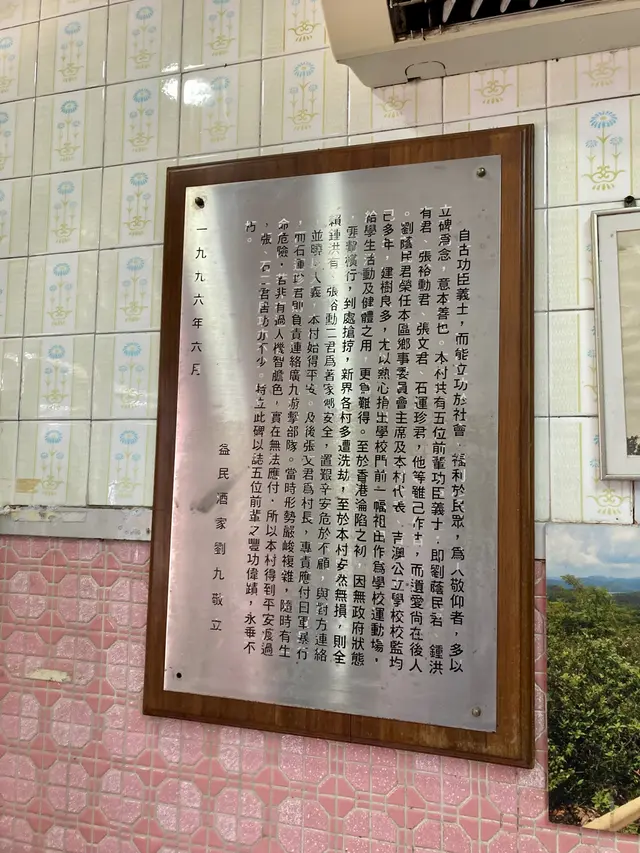 自古功臣義士，而能立功於社會，福利於民眾，為人敬仰者，多以
立碑為念，意本善也。本村共有五位前輩功臣義士，即劉蔭民君、鍾洪
有君、張裕勳君、張文君、石運珍君，他等雖已作古，而遺愛尚在後人
。劉蔭民君榮任本區鄉事委員會主席及本村代表、吉澳公立學校校監均
已多年，建樹良多，尤以熱心捐出學校門前一幅祖田作為學校運動場，
給學生活動及健體之用，更為難得。至於香港淪陷之初，因無政府狀態
，張黎橫行，到處搶掠，新界各村多遭洗劫，至於本村安然無損，則全
賴鍾洪有、張裕勳二君為著家鄉安全，置艱辛安危於不顧，與對方連絡
並曉以大義，本村始得平安。及後張文君為村長，專責應付日軍暴行
，而石運珍君則負責連絡廣九游擊部隊。當時形勢嚴峻複雜，隨時有生
命危險，若非有過人機智膽色，實在無法應付，所以本村得到平安度過
，張、石二君居功不少。特立此碑以誌五位前輩之豐功偉蹟，永垂不
朽。
益民酒家劉九敬立
一九九六年六月